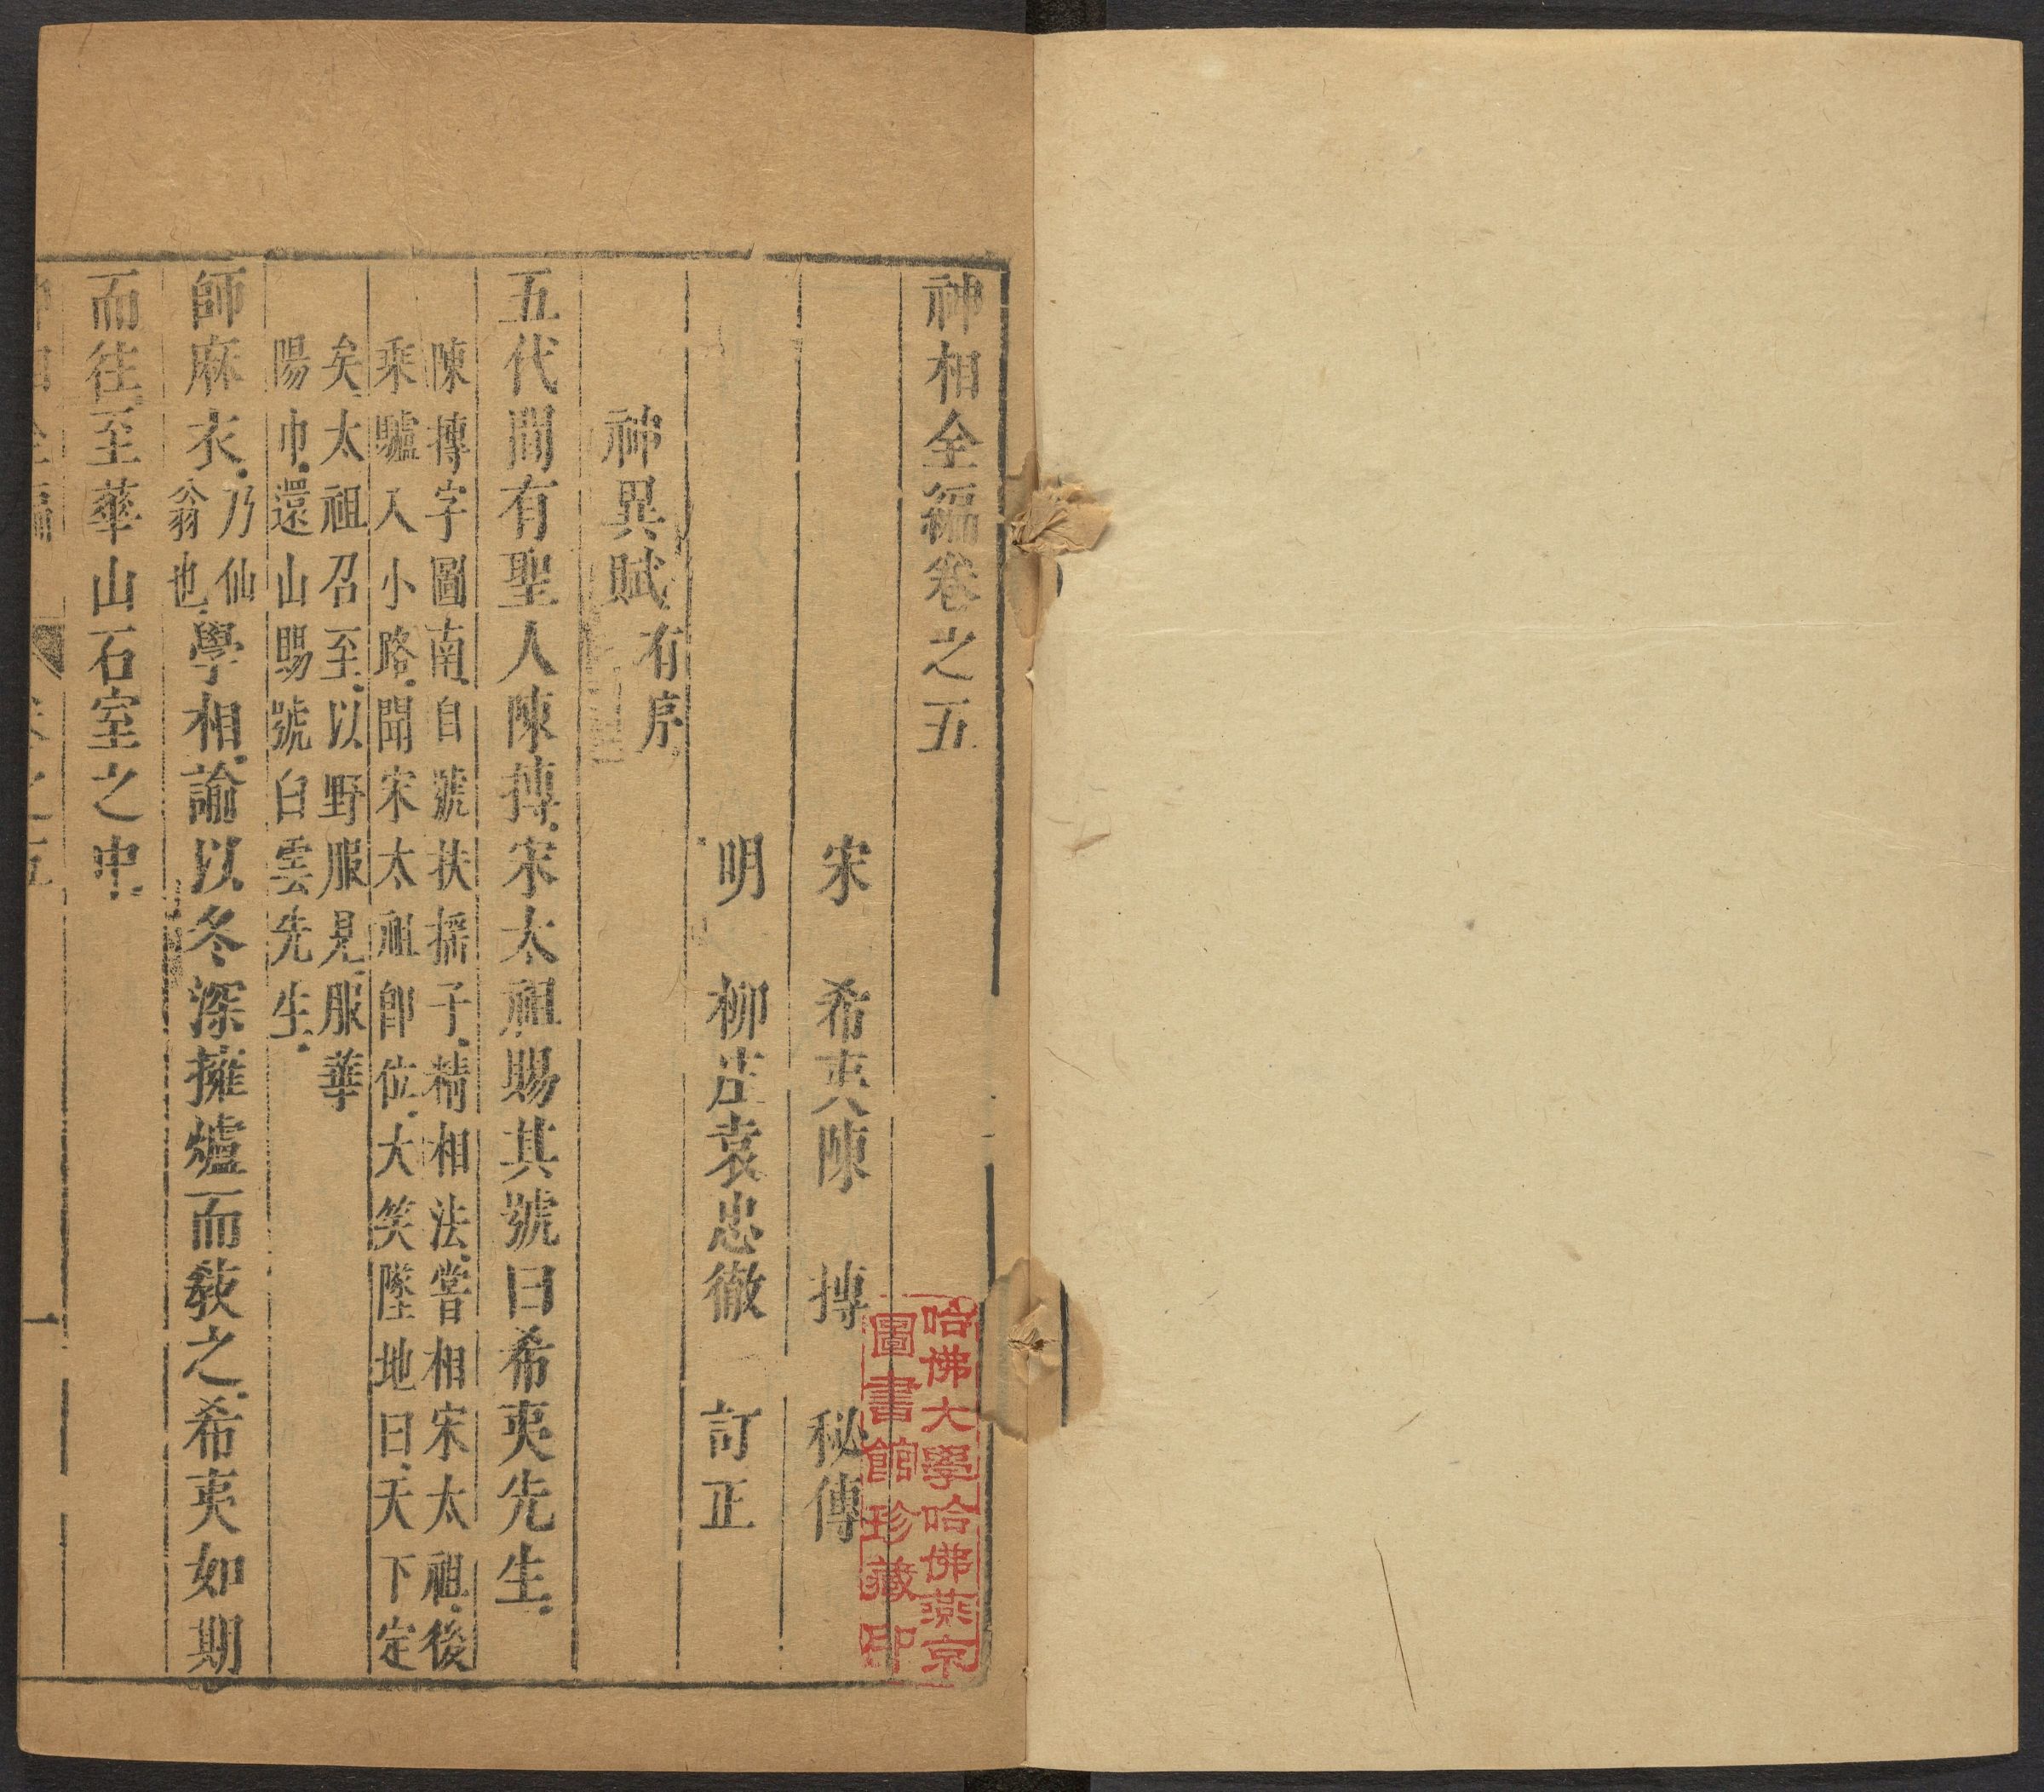 神相全編卷之五
宋 希夷陳 摶 秘傳
明 柳庄袁忠徹 訂正
神異賦有序
五代間有聖人陳摶宋太祖賜其號曰希夷先生
陳摶字圖南自號扶搖子精相法嘗相宋太祖後
乘驢入小路聞宋太祖卽位大笑墜地曰天下定
矣太祖召至以野服見服華
陽巾還山賜號白雲先生
師麻衣乃仙翁也學相諭以冬深擁爐而敎之希夷如期
而往至華山石室之中
卷之五
一
哈佛大學哈佛燕京
圖書館珍藏印